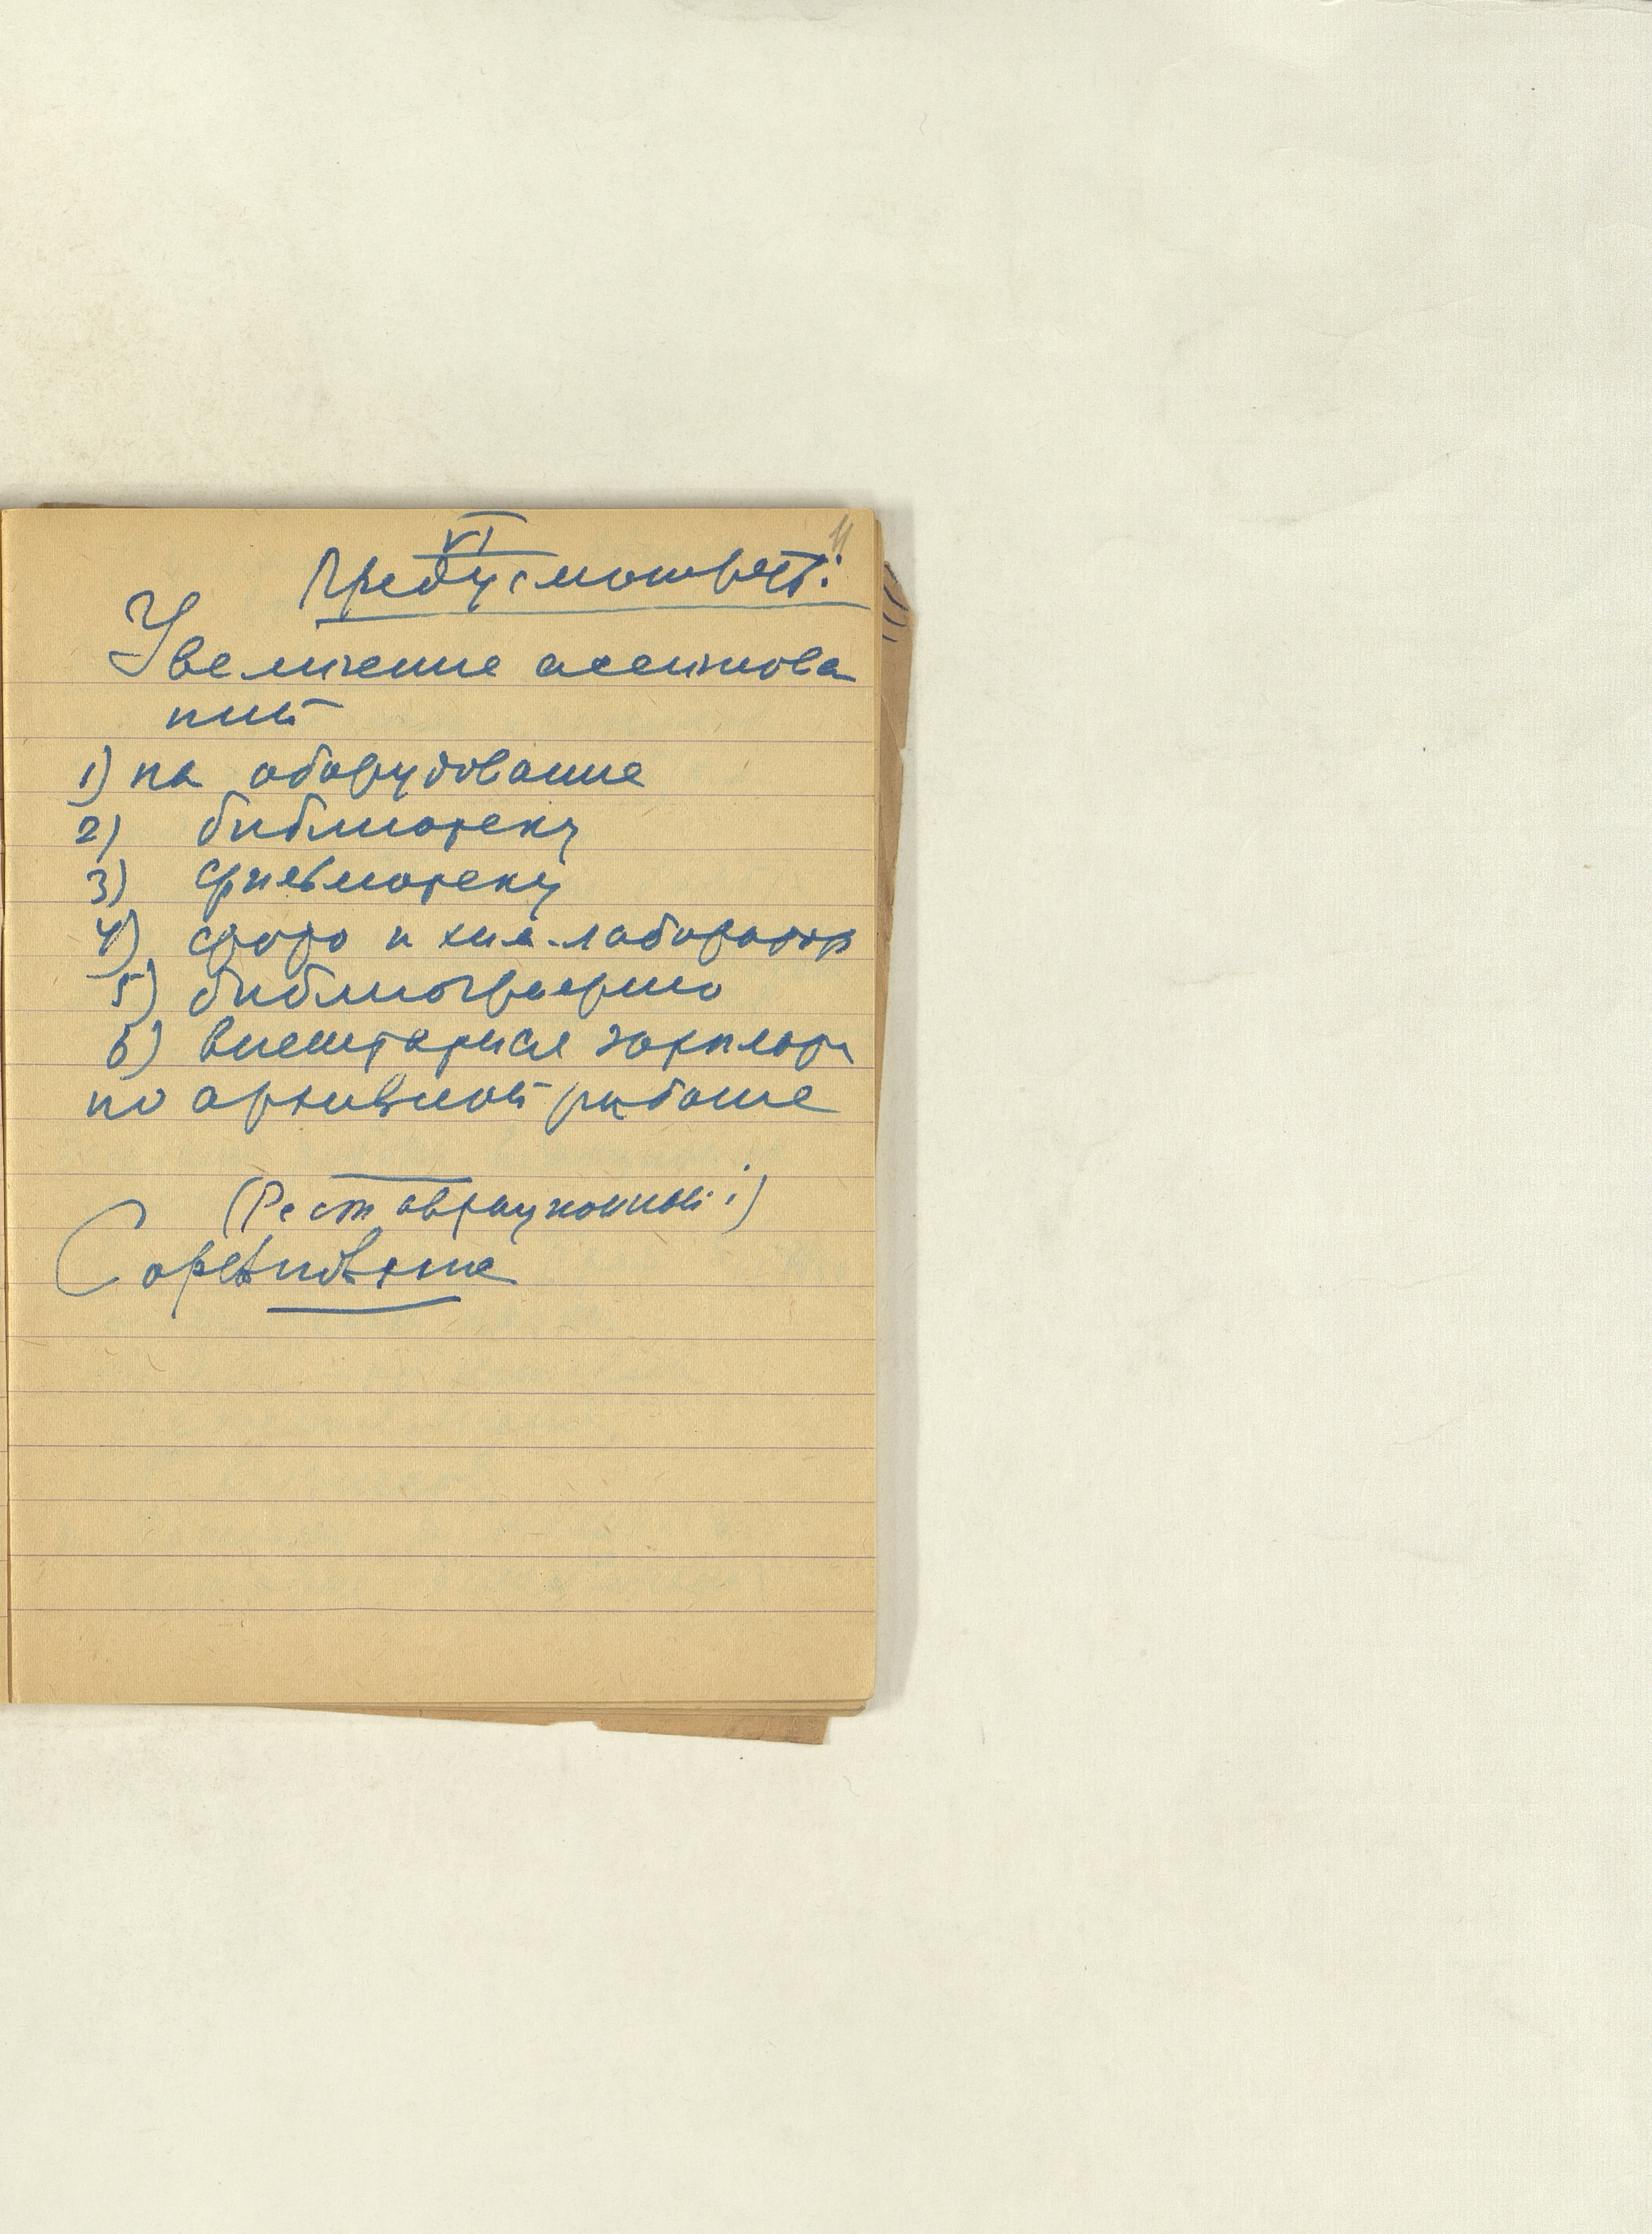 VI
11
Предусмотреть:
Увеличение ассигнова
ний
1) на оборудование
2) библиотеку
3) фильмотеку
4) фото и хим.лаборатор
5) библиографию
6) внештатная зарплата
по архивной работе
(Реставрационный:)
Соревнование